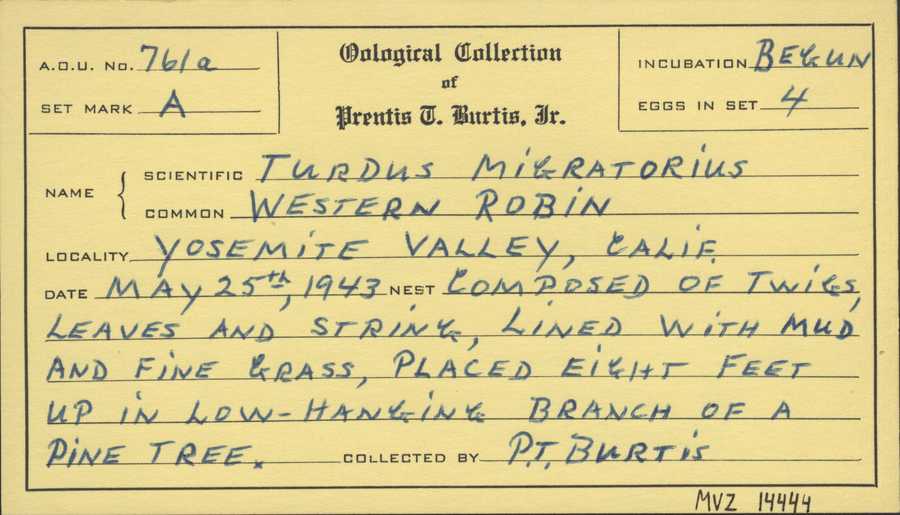 A.O.U. No. 761a
SET MARK A
Oological Collection
of
Prentis T. Burtis, Jr.
INCUBATION BEGUN
EGGS IN SET 4
NAME
SCIENTIFIC TURDUS MIGRATORIUS
COMMON WESTERN ROBIN
LOCALITY YOSEMITE VALLEY, CALIF.
DATE MAY 25th, 1943 NEST COMPOSED OF TWIGS,
LEAVES AND STRING, LINED WITH MUD
AND FINE GRASS, PLACED EIGHT FEET
UP IN LOW-HANGING BRANCH OF A
PINE TREE. COLLECTED BY P.T. BURTIS
MVZ 14444